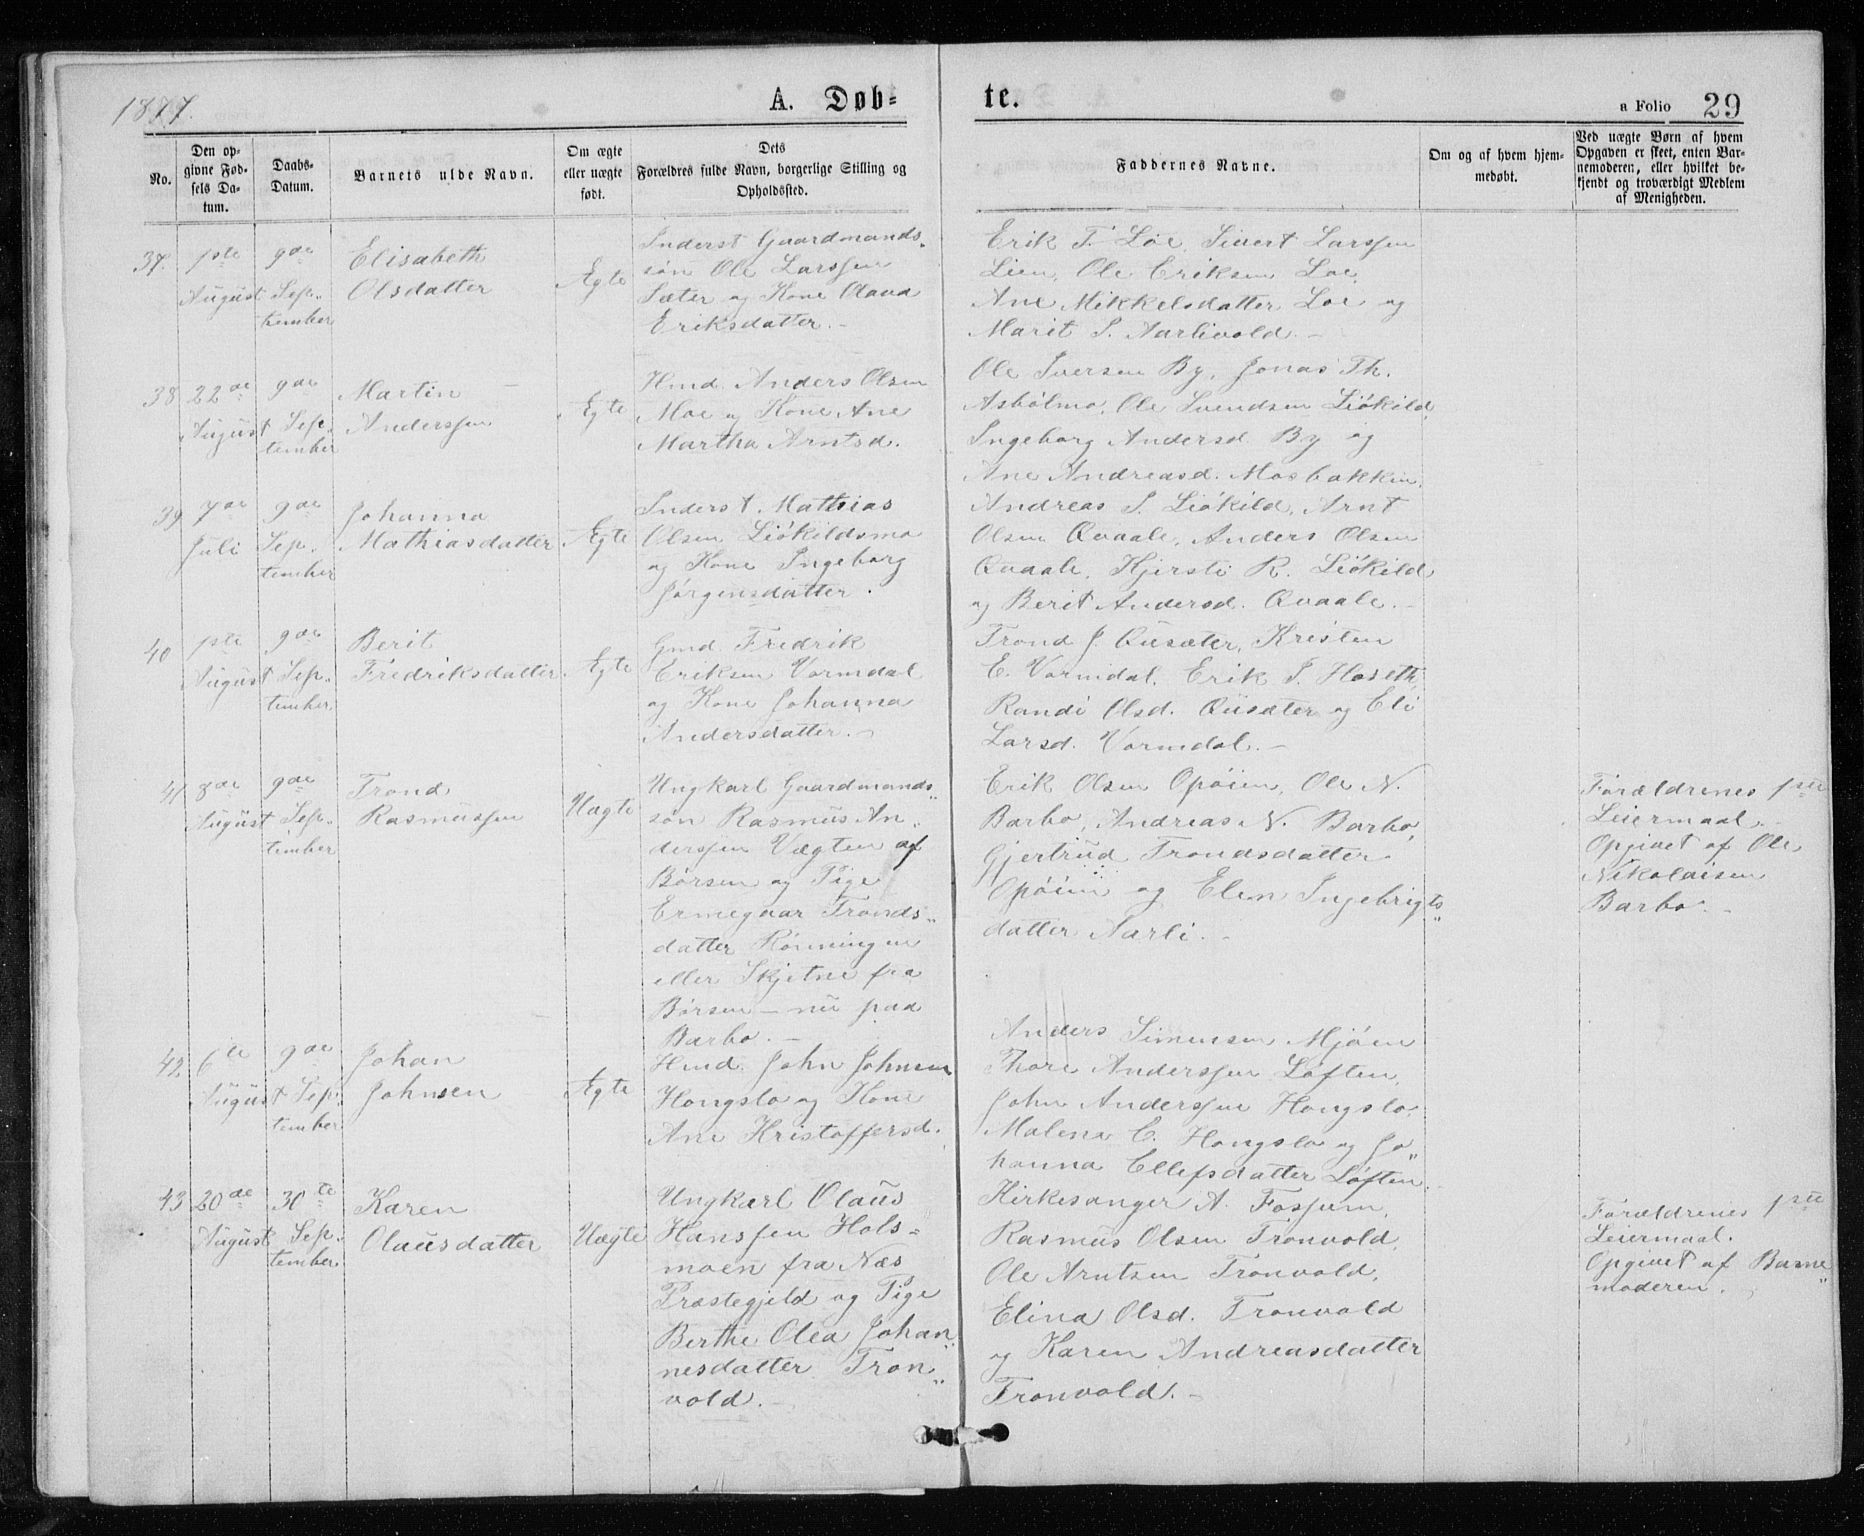 1877.
A. Døb-
te.
a Folio 29
No.
Den op-
givne Fød-
sels Da-
tum.
Daabs-
Datum.
Barnets ulde Navn.
Om ægte
eller uægte
født.
Dets
Forældres fulde Navn, borgerlige Stilling og
Opholdssted.
Faddernes Navne.
Om og af hvem hjem-
medøbt.
Ved uægte Børn af hvem
Opgaven er skeet, enten Bar-
nemoderen, eller hvilket be-
kjendt og troværdigt Medlem
af Menigheden.
37.
1ste
August
9de
Sep-
tember
Elisabeth
Olsdatter
Ægte
Inderst Gaardmands-
søn Ole Larssen
Sæter og Kone Olava
Eriksdatter.
Erik T. Løe, Sivert Larssen
Lien, Ole Eriksen Loe,
Ane Mikkelsdatter Loe og
Marit S. Aarlivold.
38
22de
August
9de
Sep-
tember
Martin
Anderssen
Ægte
Hmd. Anders Olsen
Moe og Kone Ane
Martha Arntsd.
Ole Iversen By, Jonas Th.
Asbölmo, Ole Svendsen Liökild,
Ingeborg Andersd. By og
Ane Andreasd. Mosbakken.
39
7de
Juli
9de
Sep-
tember
Johanna
Mathiasdatter
Ægte
Inderst Mathias
Olsen Liökildsmo
og Kone Ingeborg
Jørgensdatter.
Andreas S. Liökild, Arnt
Olsen Qvaale, Anders Olsen
Qvaale, Kjersti R. Liökild
og Berit Andersd. Qvaale.
40
1ste
August
9de
Sep-
tember
Berit
Fredriksdatter
Ægte
Gmd Fredrik
Eriksen Vormdal
og Kone Johanna
Andersdatter.
Trond J. Qusæter, Kristen
E. Vormdal, Erik I. Hoseth,
Randi Olsd. Qusæter og Eli
Larsd. Vormdal.
41
8de
August
9de
Sep-
tember
Trond
Rasmussen
Uægte
Ungkarl Gaardmands-
søn Rasmus An-
derssen Vægten af
Børsen og Pige
Ermegaar Tronds-
datter Rönningen
eller Skjetne fra
Børsen – nu paa
Barbo.
Erik Olsen Opöien, Ole N.
Barbo, Andreas N. Barbo,
Gjertrud Trondsdatter
Opöien og Elen Ingebrigts-
datter Aarli.
Forældrenes 1ste
Leiermaal.
Opgivet af Ole
Nikolaisen
Barbo.
42
6te
August
9de
Sep-
tember
Johan
Johnsen
Ægte
Hmd. John Johnsen
Hongslo og Kone
Ane Kristoffersd.
Anders Simensen Mjöen
Thore Anderssen Løften,
John Anderssen Hongslo,
Malena C. Hongslo og Jo-
hanna Ellefsdatter Løften.
43
20de
August
30te
Sep-
tember
Karen
Olausdatter
Uægte
Ungkarl Olaus
Hanssen Hols-
moen fra Næs
Præstegjeld og Pige
Berthe Olea Johan-
nesdatter Tron-
vold.
Kirkesanger A. Fossum,
Rasmus Olsen Tronvold,
Ole Arntsen Tronvold,
Elina Olsd. Tronvold
og Karen Andreasdatter
Tronvold.
Forældrenes 1ste
Leiermaal.
Opgivet af Barne-
moderen.